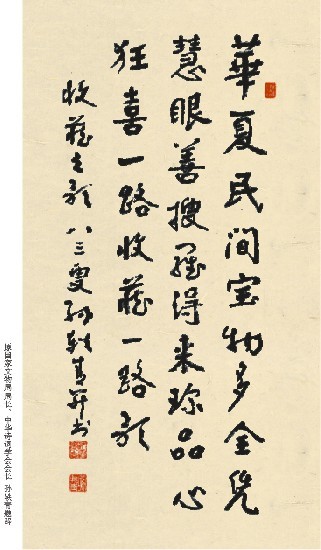 華夏民间宝物多全凭
慧眼善搜羅得来珍品心
狂喜一路收藏一路歌
收藏之歌 八三叟孙轶青并书
原国家文物局局长、中华诗词学会会长 孙轶青题辞